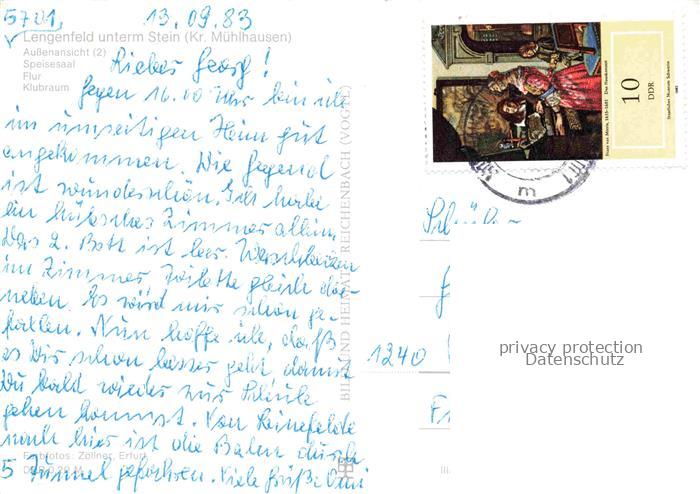 5701, 13.09.83
Lengenfeld unterm Stein (Kr. Mühlhausen)
Außenansicht (2)
Speisesaal
Flur
Klubraum
Lieber Georg!
Gegen 16.00 Uhr bin ich
im umseitigen Heim gut
angekommen. Die Gegend
ist wunderschön. Ich habe
ein hübsches Zimmer allein.
Das 2. Bett ist leer. Waschbecken
im Zimmer, Toilette gleich da-
neben. Es wird mir schon ge-
fallen. Nun hoffe ich, daß
es Dir schon besser geht damit
Du bald wieder zur Schule
gehen kannst. Von Leinefelde
nach hier ist die Bahn durch
5 Tunnel gefahren. Viele Grüße Omi
Farbfotos: Zöllner, Erfurt
BILD UND HEIMAT REICHENBACH (VOGTL)
10
DDR
Frans van Mieris, 1635-1681
Staatliches Museum Schwerin
1982
m
Schüler
1240
privacy protection
Datenschutz